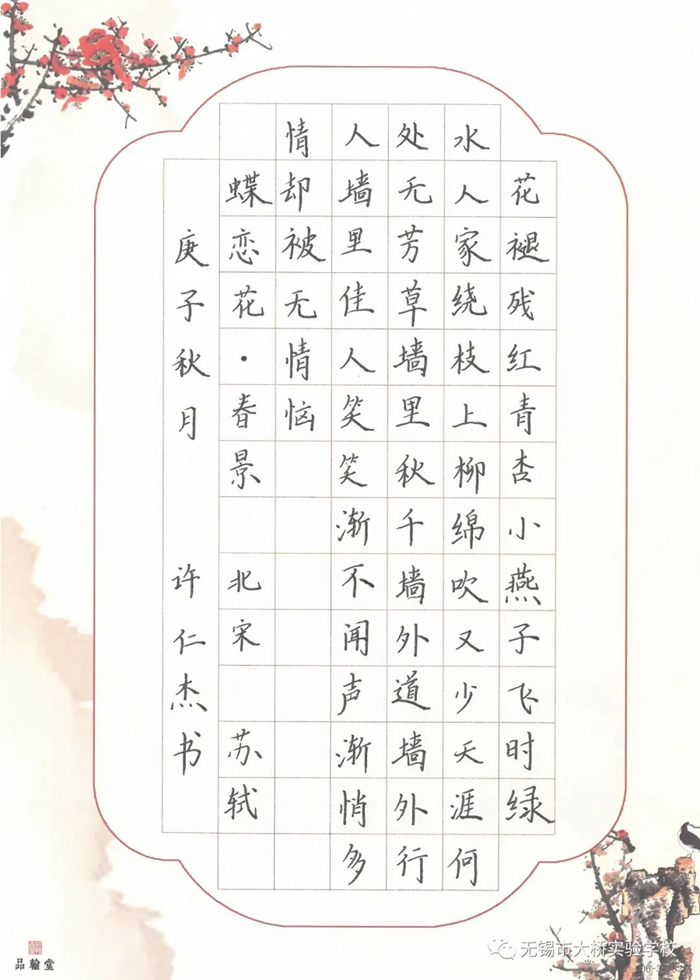 花褪残红青杏小燕子飞时绿
水人家绕枝上柳绵吹又少天涯何
处无芳草墙里秋千墙外道墙外行
人墙里佳人笑笑渐不闻声渐悄多
情却被无情恼
蝶恋花·春景 北宋 苏轼
庚子秋月 许仁杰书
品翰堂
无锡市大桥实验学校